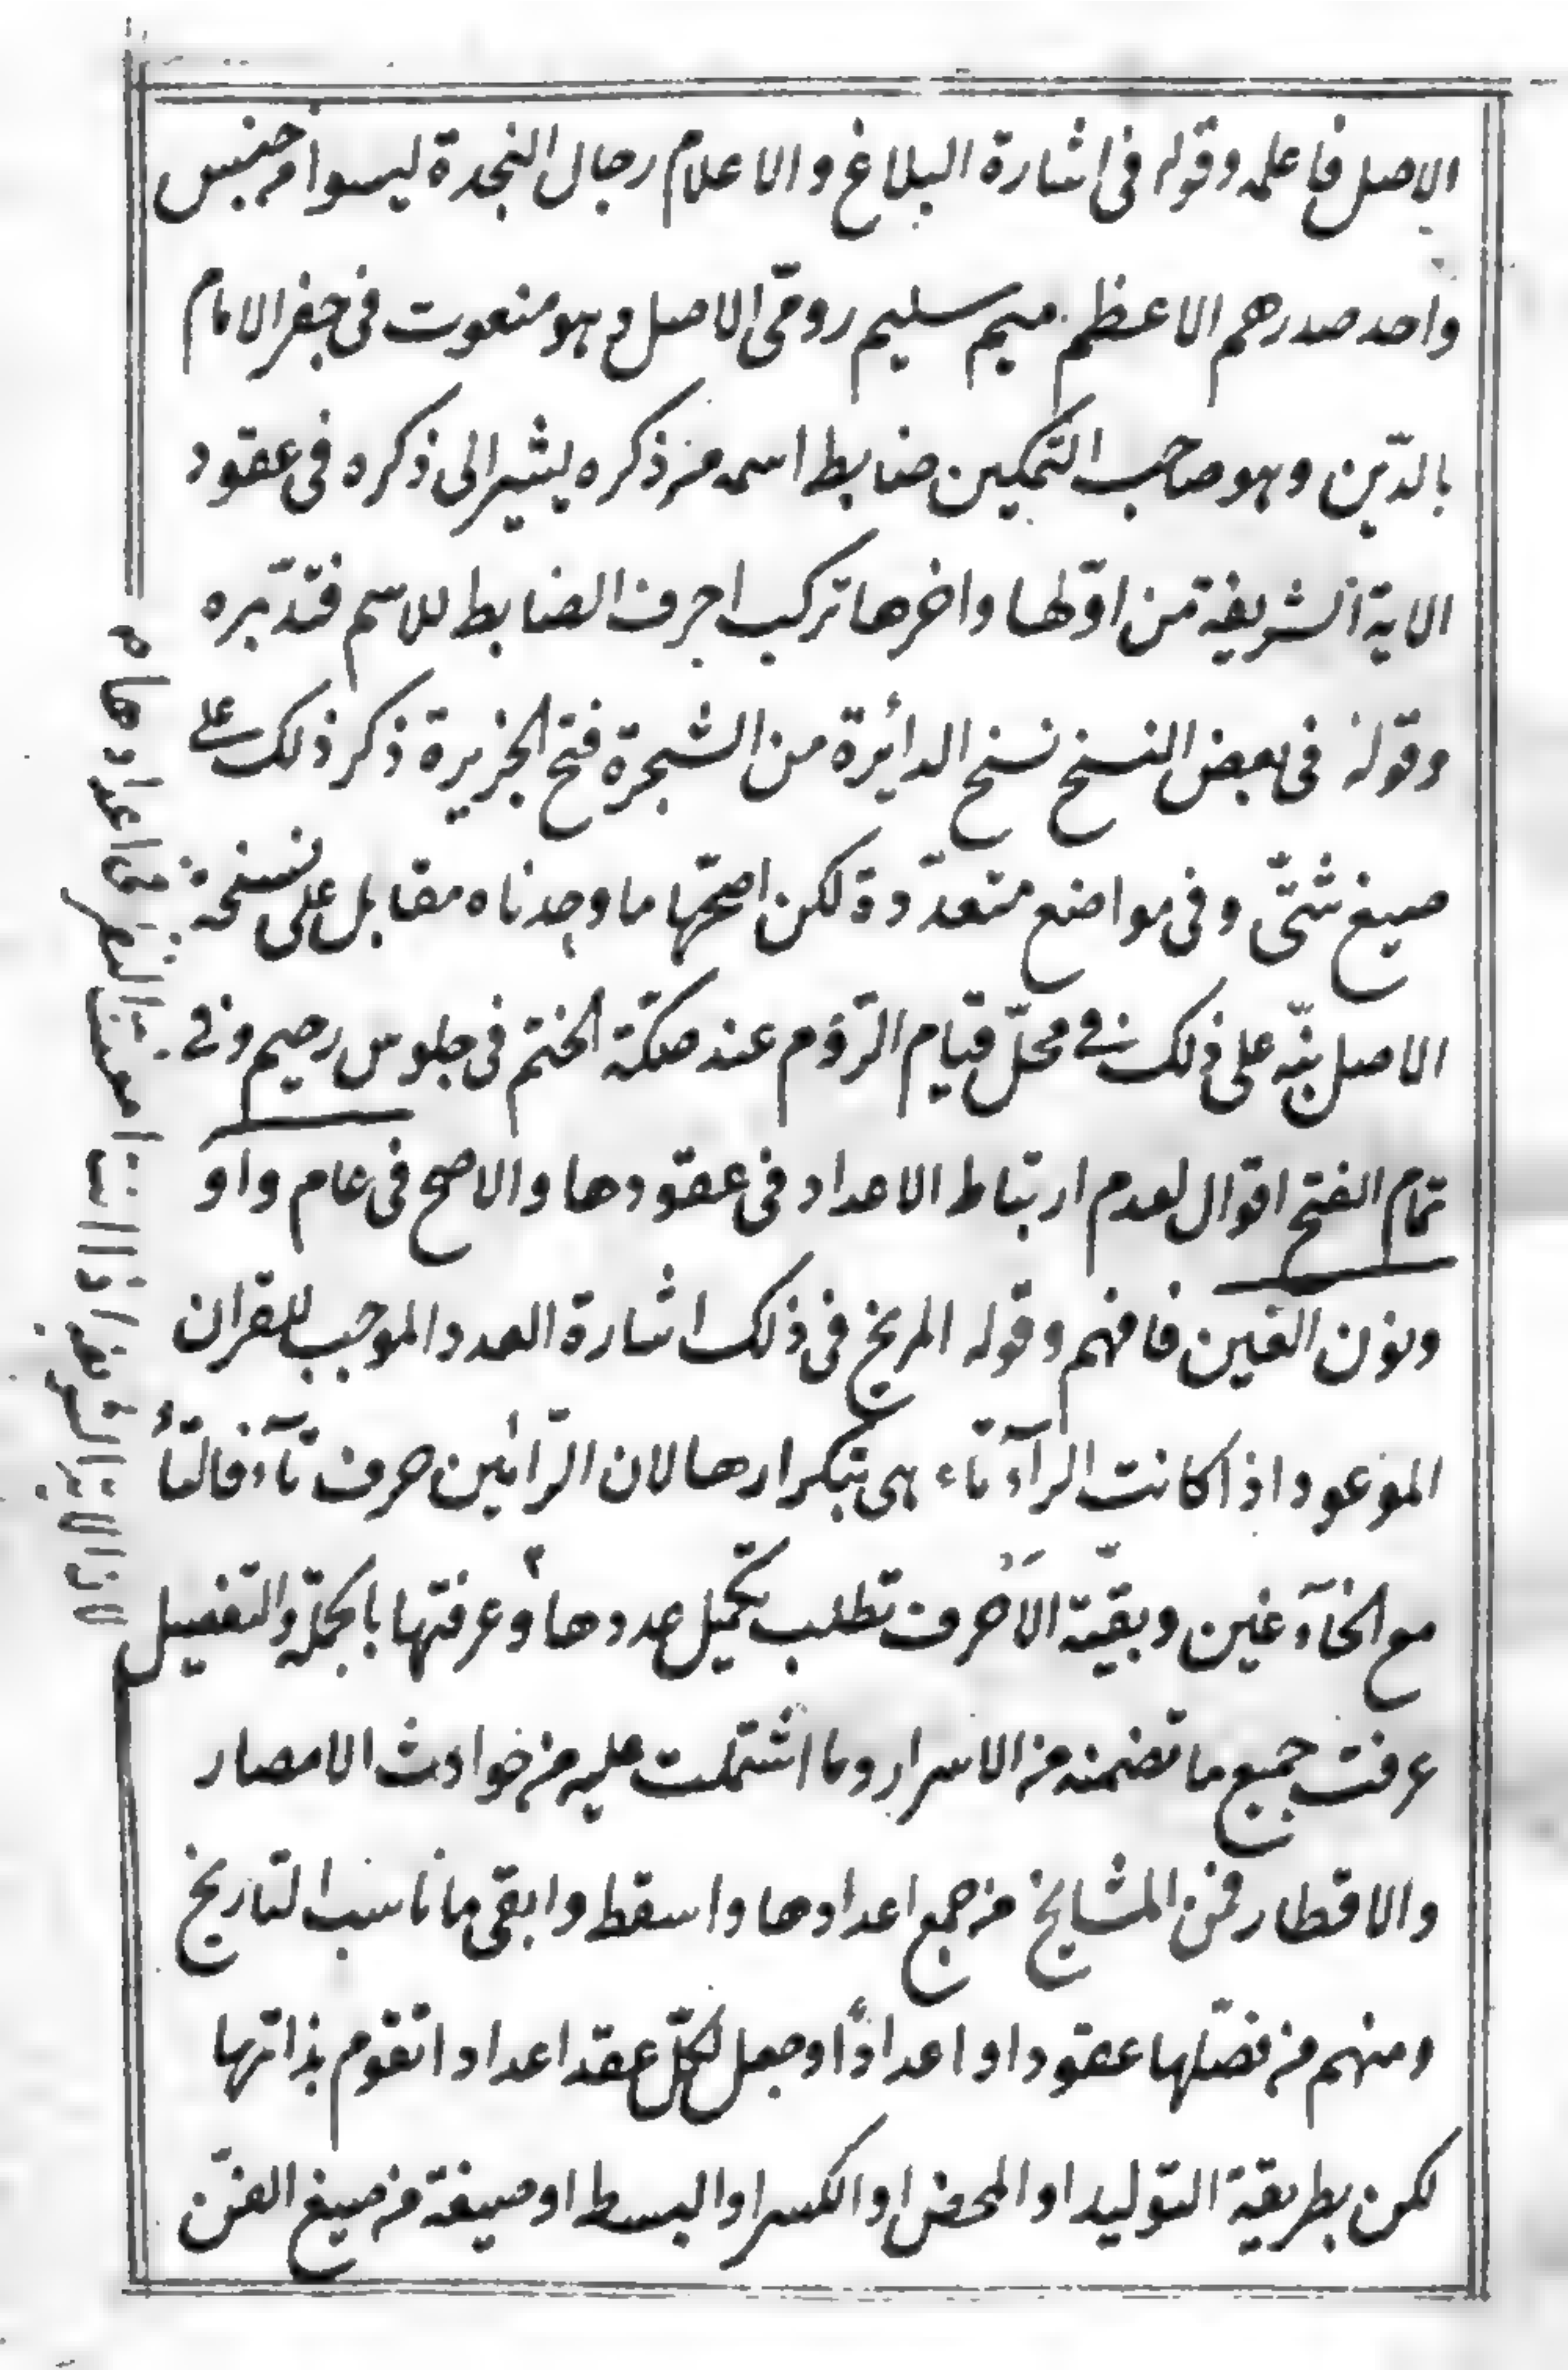 الاصل فاعلمه وقوله فى اشارة البلاغ والاعلام رجال النجدة ليسوا من جنس
واحد صدرهم الاعظم ميم سليم رومّى الاصل وهو منعوت فى جفر الامام
بالدّين وهو صاحب التمكين ضابط اسمه من ذكره يشير الى ذكره فى عقود
الاية الشريفة من اوّلها واخرها تركب احرف الضابط للاسم فتدبّره
وقوله فى بعض النسخ نسخ الدائرة من الشجرة فتح الجزيرة ذكر ذلك على
صيغ شتّى وفى مواضع متعدّدة لكن اصحّها ما وجدناه مقابل على نسخة
الاصل نبّه على ذلك فى محلّ قيام الرّوم عند صكّة الختم فى جلوس رحيم وفى
تمام الفتح اقوال لعدم ارتباط الاعداد فى عقودها والاصح فى عام واو
ونون الغين فافهم وقوله المريخ فى ذلك اشارة العدد الموجب للقران
الموعود اذا كانت الرآء تاء هى بتكرارها لان الرّائين حرف تآء فالتأ
مع الخآء غين وبقيّة الاحرف تطلب تكميل عددها وعرفتها بالجملة والتفصيل
عرفت جميع ما تضمنه من الاسرار وما اشتملت عليه من حوادث الامصار
والاقطار فمن المشايخ من جمع اعدادها واسقط وابقى ما ناسب التاريخ
ومنهم من فصّلها عقودا واعدادًا وجعل لكلّ عقد اعدادا تقوم بذاتها
لكن بطريقة التوليد او المحض او الكسر او البسط او صيغة من صيغ الفنّ